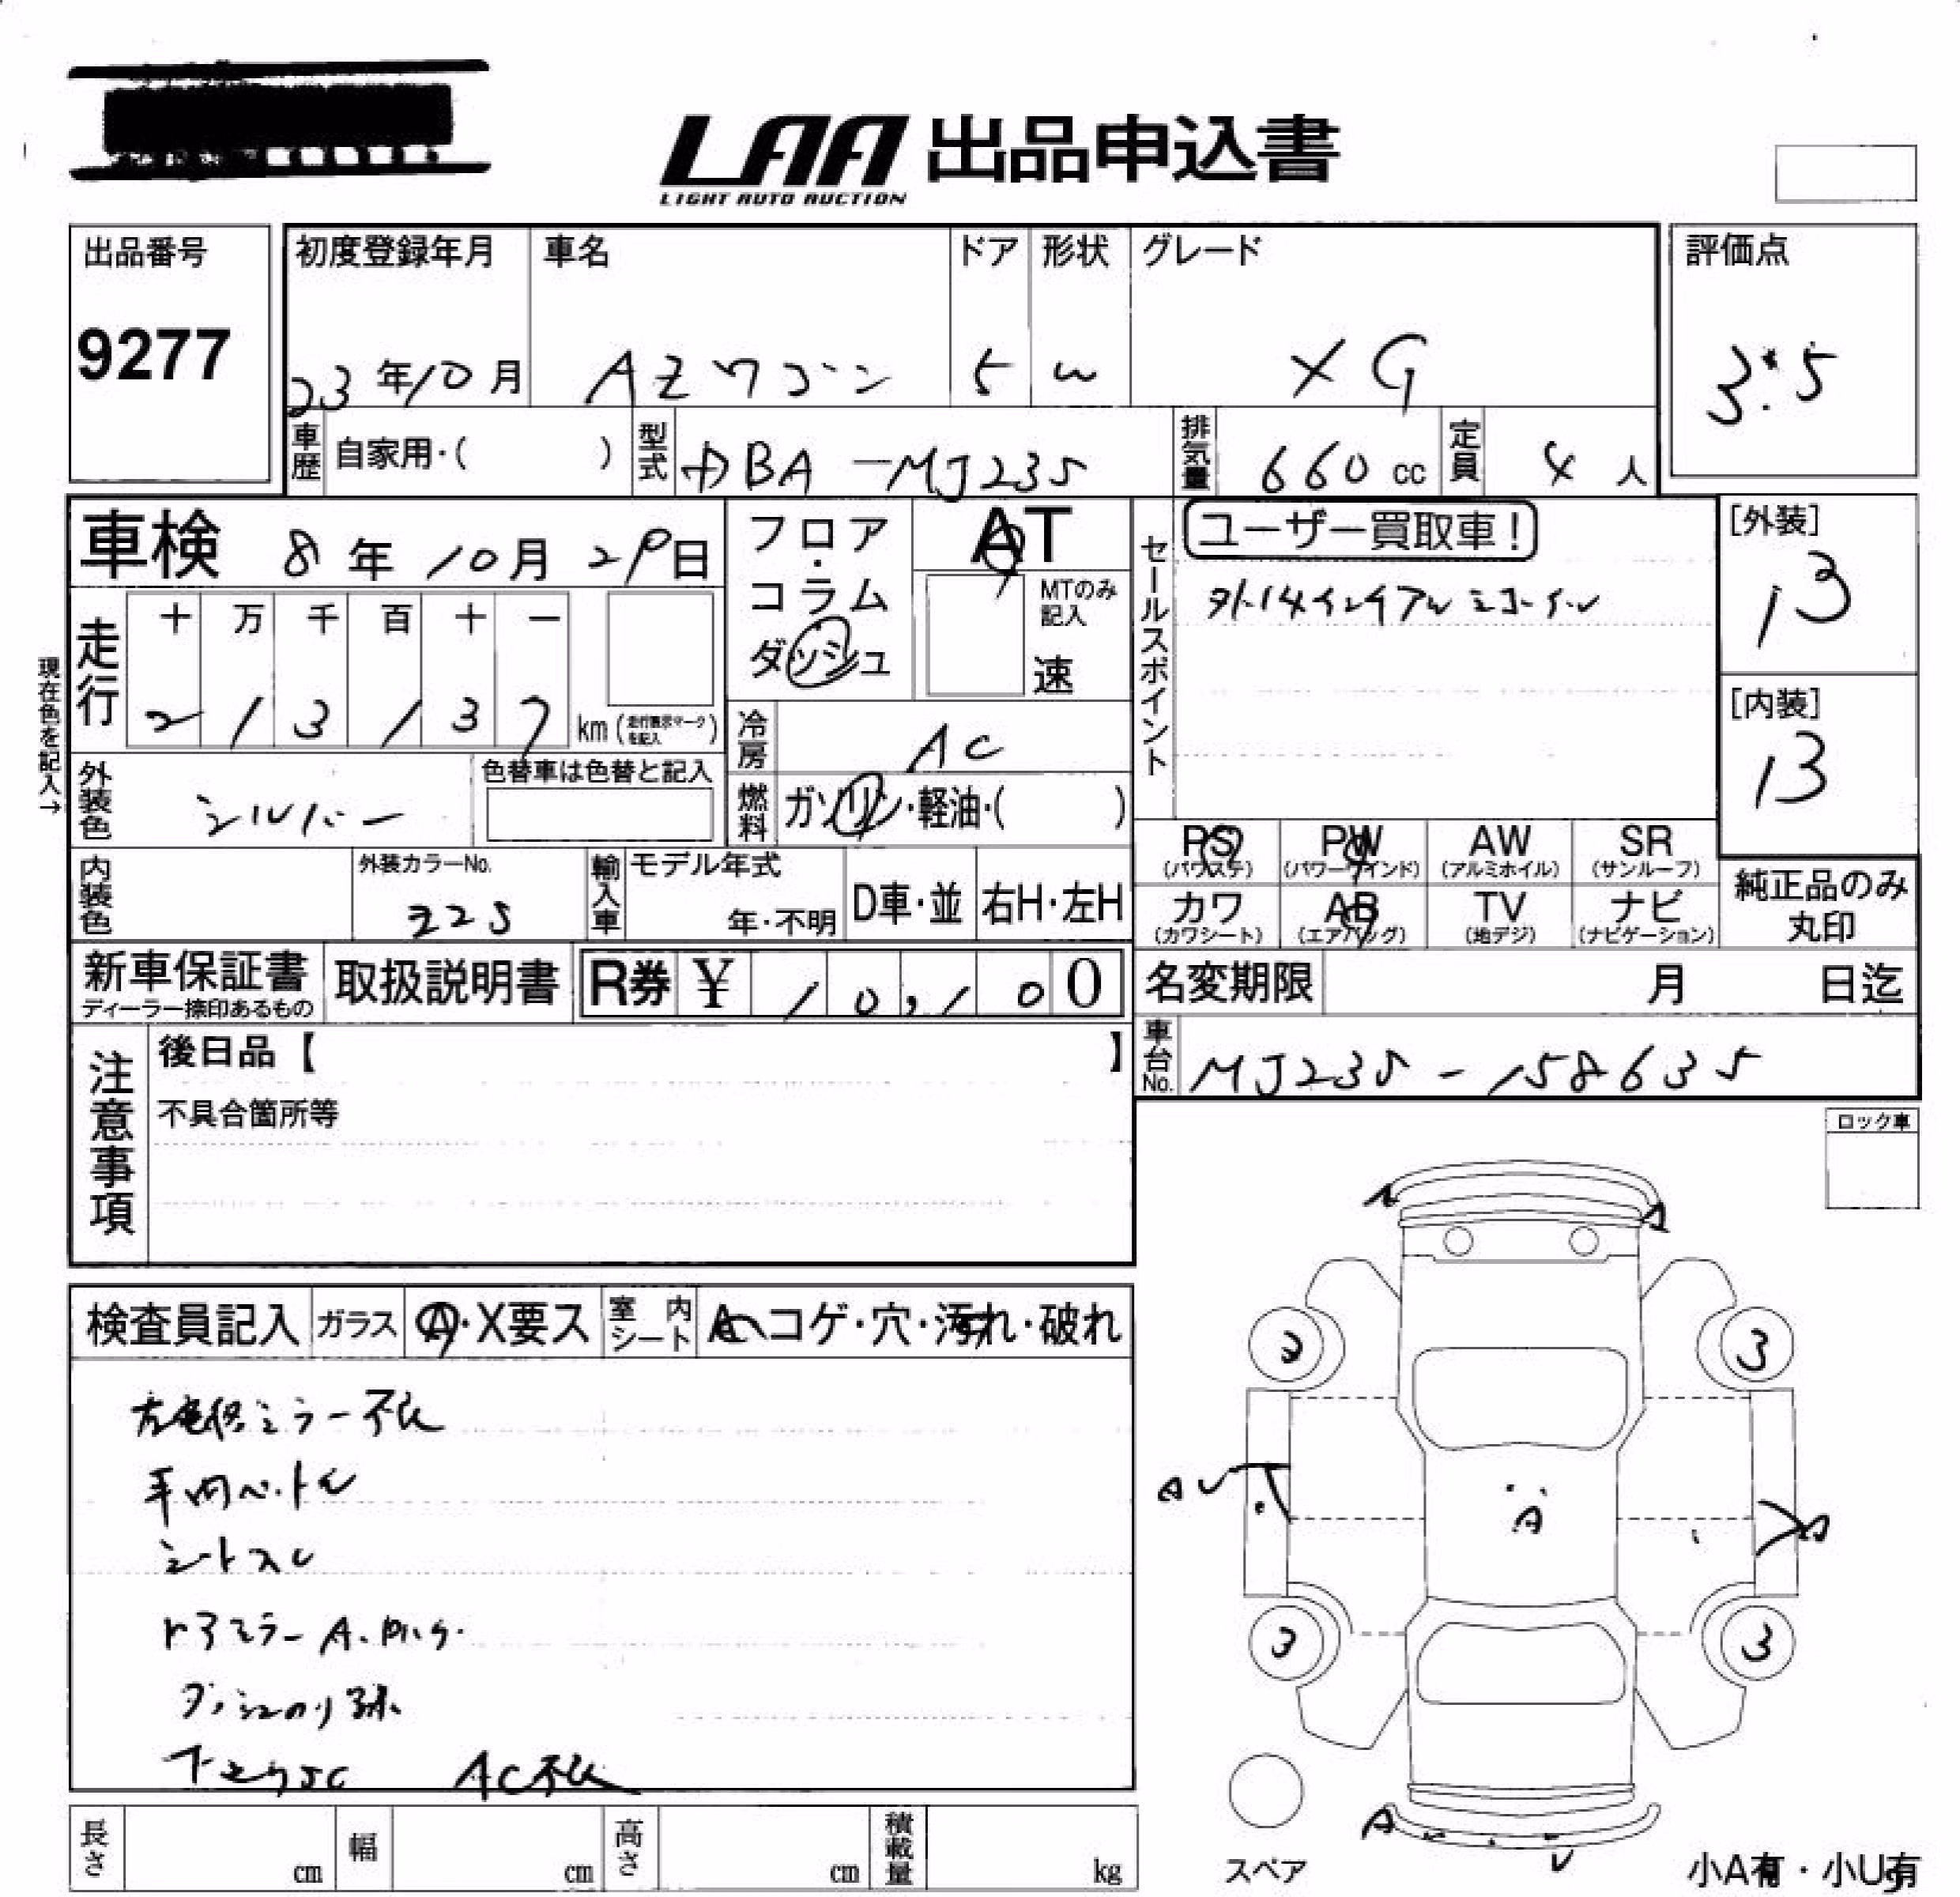 LAA 出品申込書
LIGHT AUTO AUCTION
出品番号
9277
初度登録年月
23年10月
車名
AZワゴン
ドア
5
形状
W
グレード
XG
評価点
3.5
車歴 自家用・( )
型式 DBA-MJ23S
排気量 660cc
定員 4人
車検 8年10月29日
フロア・コラム
ダッシュ
AT
MTのみ記入
速
セールスポイント
ユーザー買取車!
外14インチアルミホイル
[外装]
13
[内装]
13
現在色を記入→
走行
十 万 千 百 十 一
2 1 3 1 3 7 km (走行表示マークを記入)
冷房 AC
外装色 シルバー
色替車は色替と記入
燃料 ガソリン・軽油・( )
PS (パワステ)
PW (パワーウインド)
AW (アルミホイル)
SR (サンルーフ)
カワ (カワシート)
AB (エアバッグ)
TV (地デジ)
ナビ (ナビゲーション)
純正品のみ丸印
内装色
外装カラーNo.
22S
輸入車
モデル年式
年・不明
D車・並
右H・左H
新車保証書
ディーラー捺印あるもの
取扱説明書
R券 ¥10,100
名変期限 月 日迄
車台No. MJ23S-158635
注意事項
後日品【 】
不具合箇所等
ロック車
検査員記入
ガラス A・X要ス
室内シート コゲ・穴・汚れ・破れ
ミラー不良
シートスレ
ドアミラーA.
ダッシュのり跡
下廻りSC AC不良
A
A
3
3
AU
A
3
3
A
U
スペア
小A有・小U有
長さ cm
幅 cm
高さ cm
積載量 kg